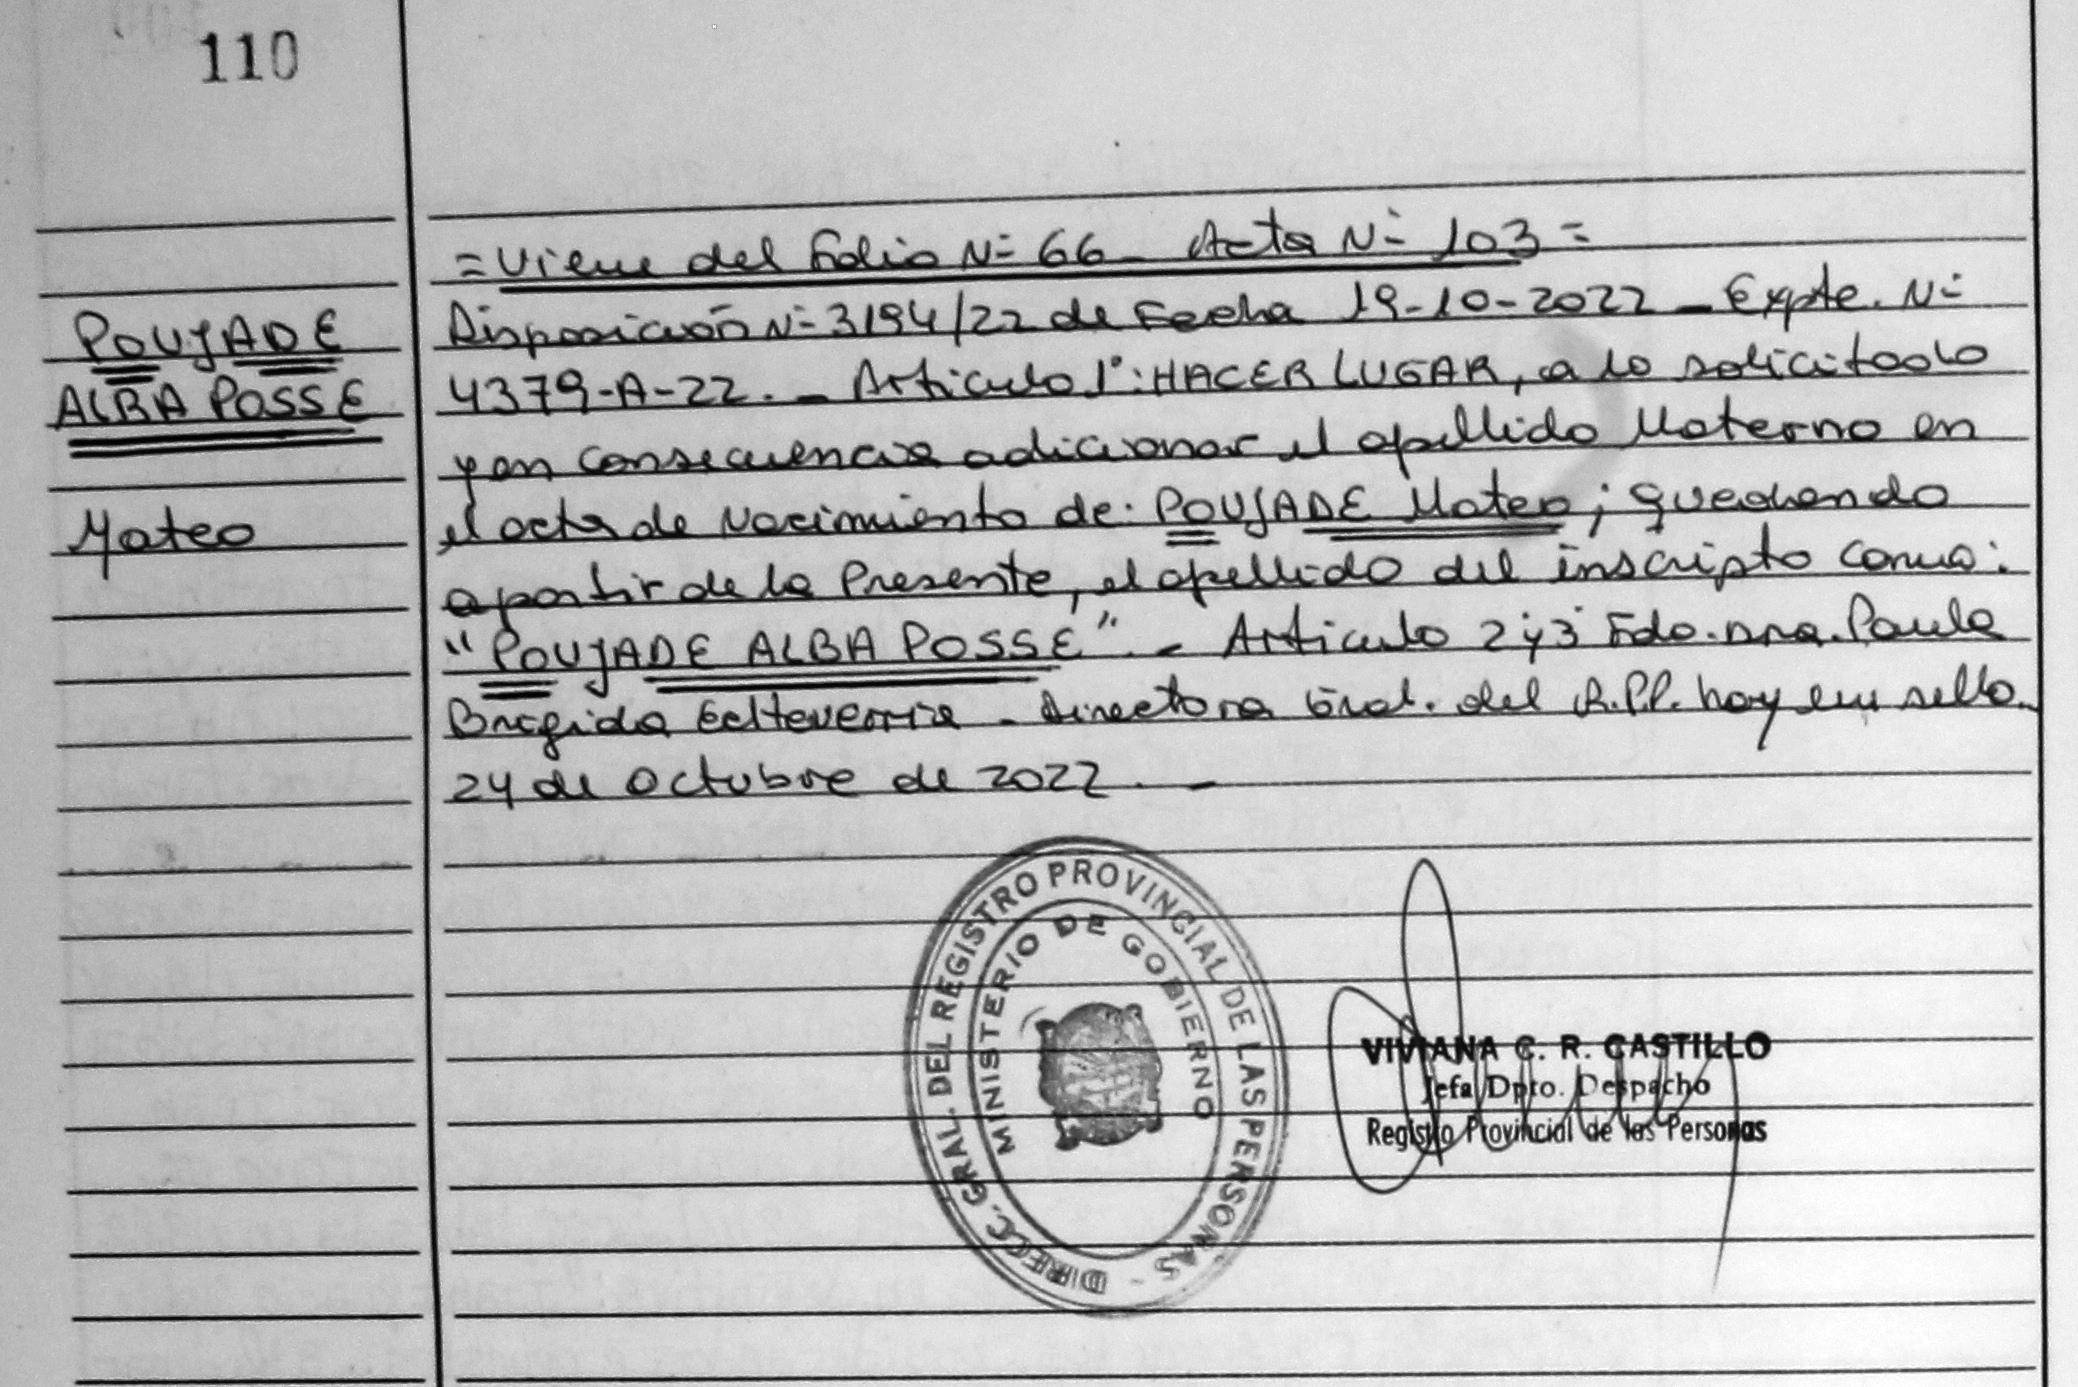 110
=Viene del Folio Nº 66 - Acta Nº 103=
POUJADE
ALBA POSSE
Mateo
Disposición Nº 3194/22 de Fecha 19-10-2022 - Expte. Nº
4379-A-22. - Articulo 1º: HACER LUGAR, a lo solicitado
y en consecuencia adicionar el apellido Materno en
el acta de Nacimiento de: POUJADE Mateo; quedando
a partir de la Presente, el apellido del inscripto como:
"POUJADE ALBA POSSE". - Articulo 2 y 3 Fdo. Dra. Paula
Brigida Echeverria - Directora Gral. del R.P.P. hay un sello.
24 de Octubre de 2022. -
DIRECC. GRAL. DEL REGISTRO PROVINCIAL DE LAS PERSONAS -
MINISTERIO DE GOBIERNO
VIVIANA C. R. CASTILLO
Jefa Dpto. Despacho
Registro Provincial de las Personas